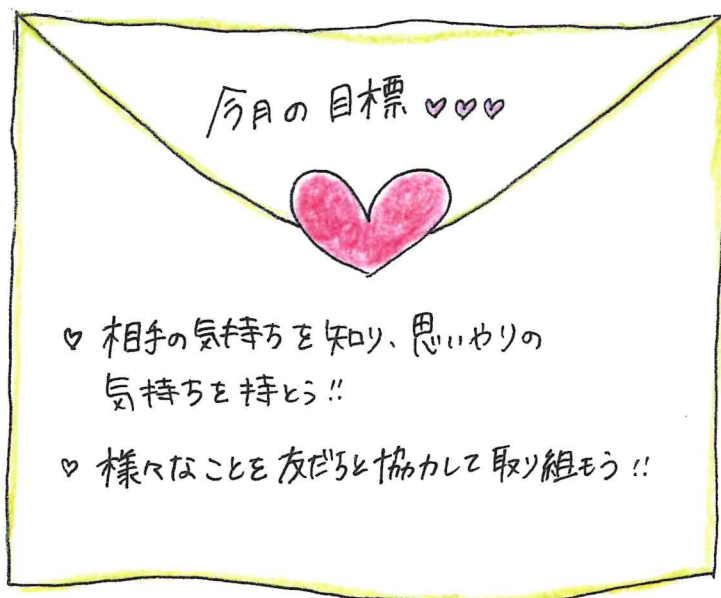 今月の目標♡♡♡
♡ 相手の気持ちを知り、思いやりの
気持ちを持とう!!
♡ 様々なことを友だちと協力して取り組もう!!